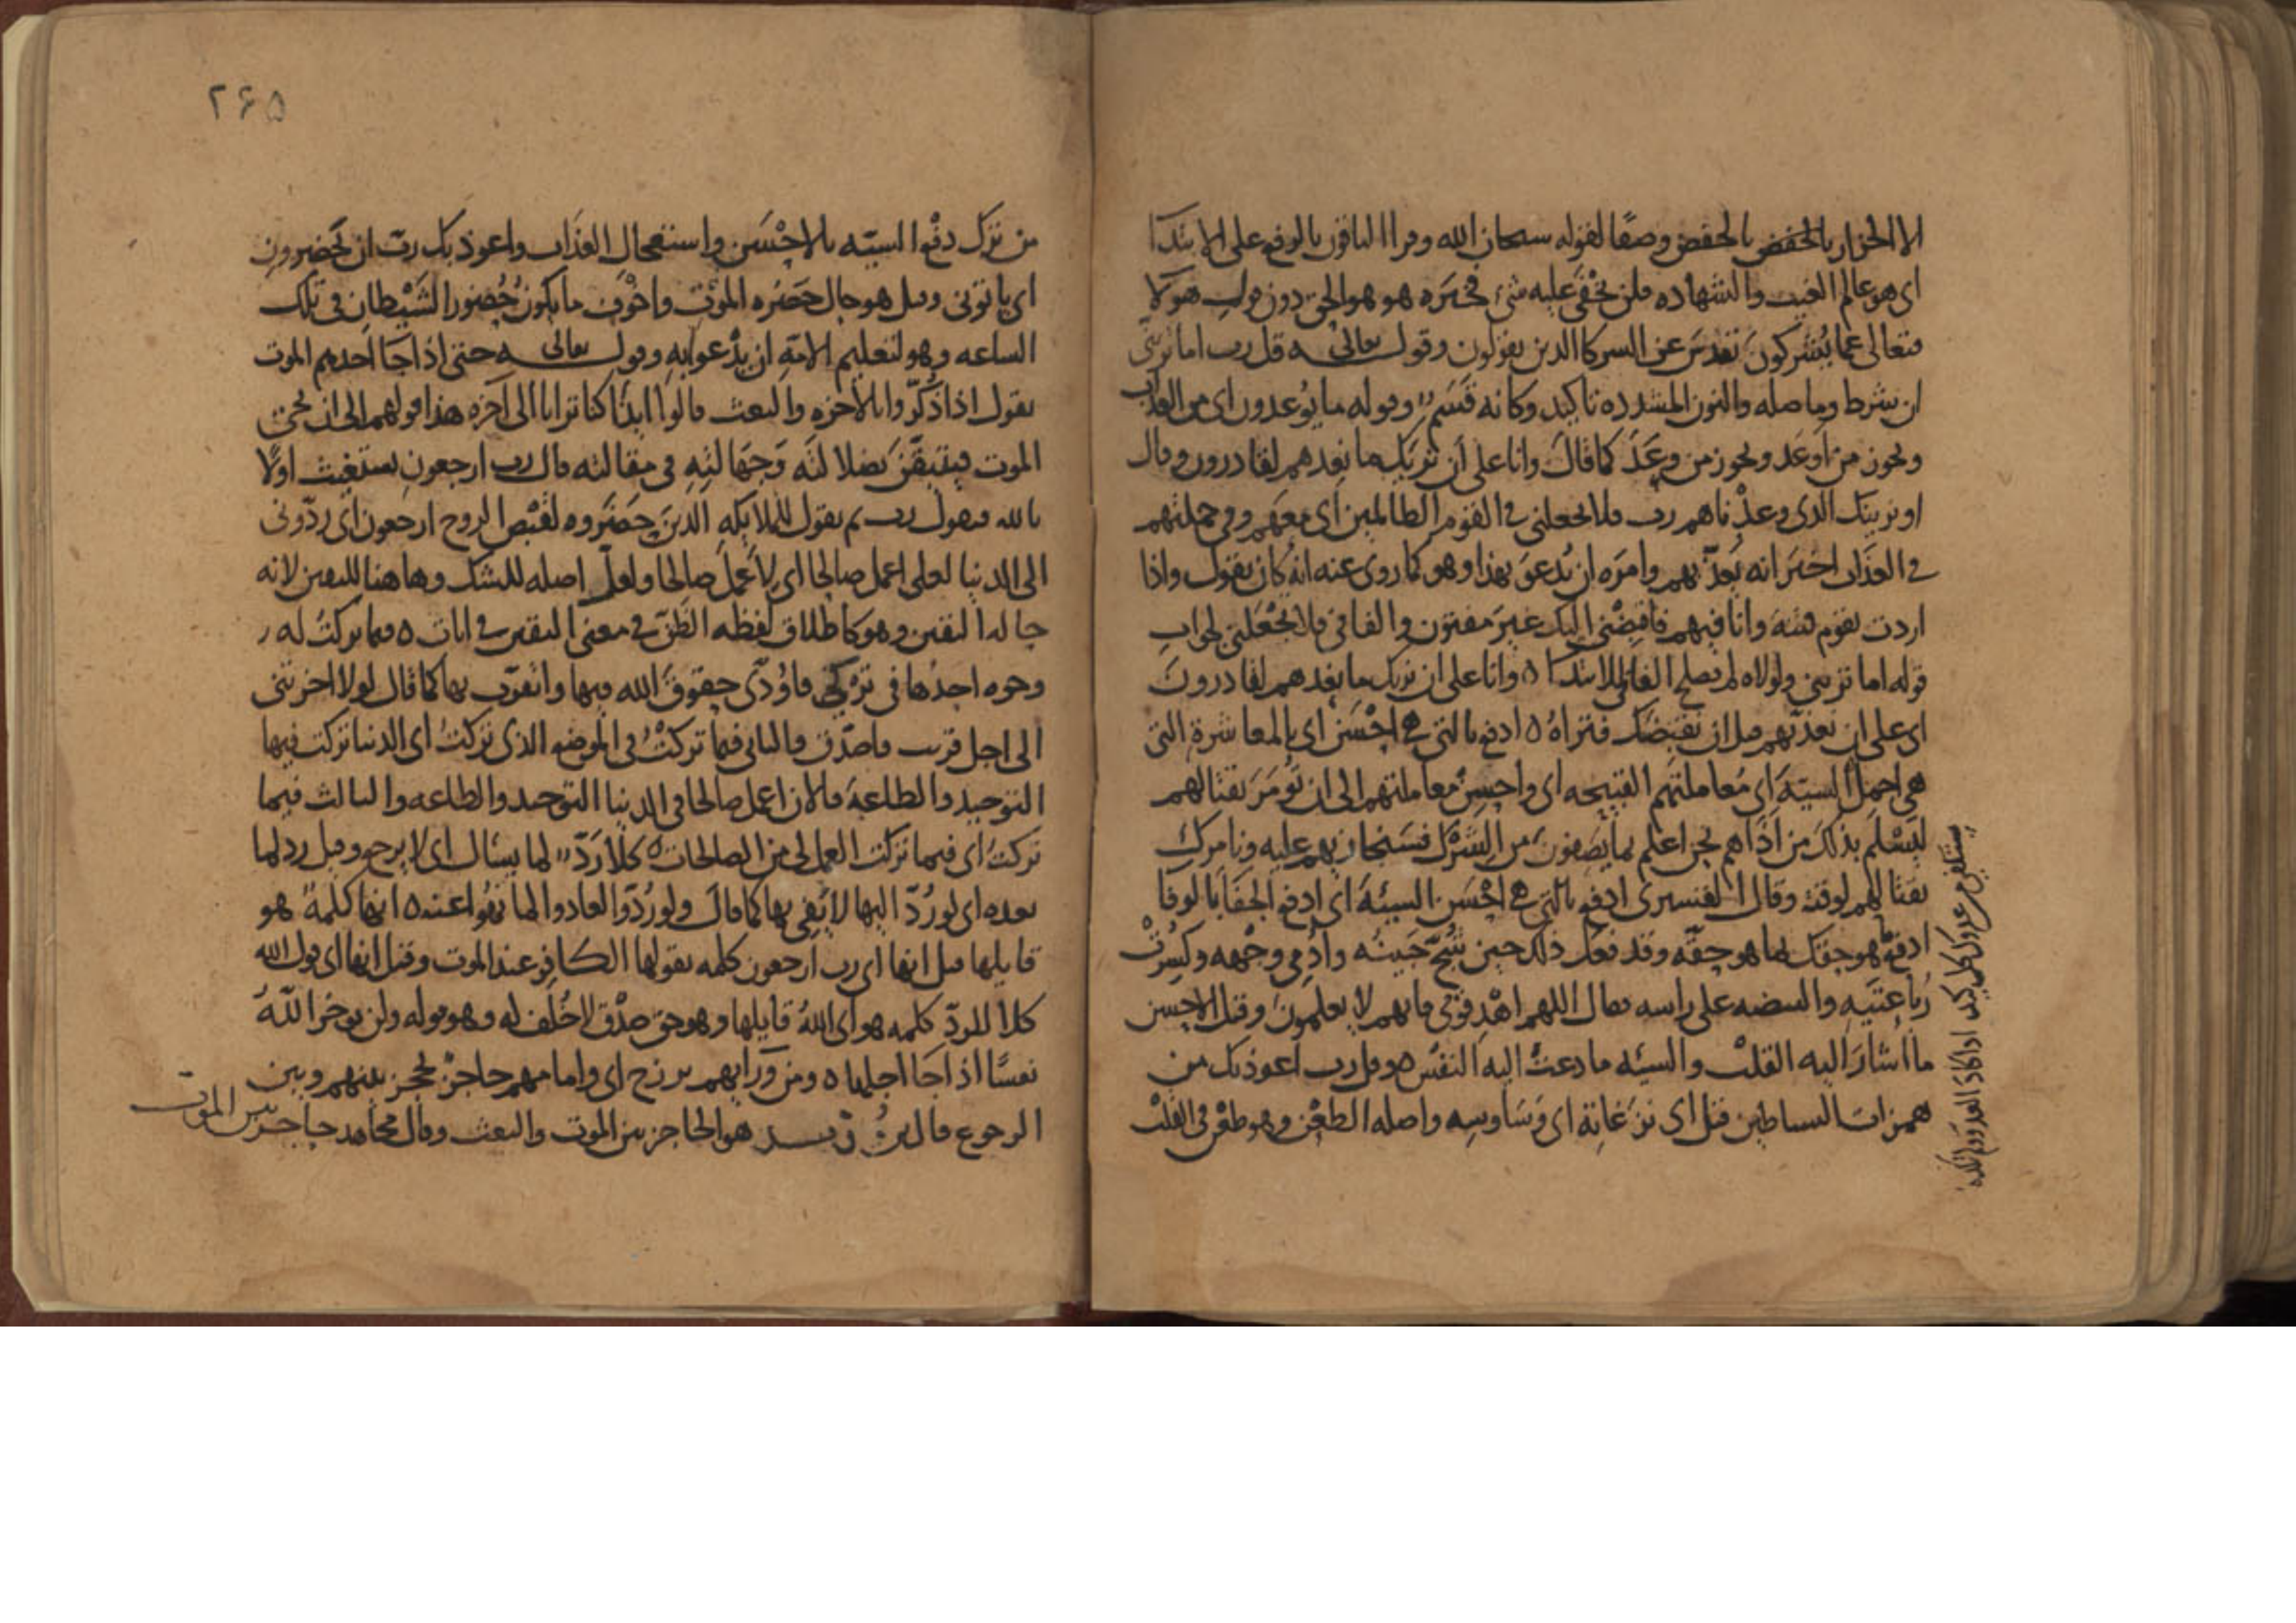 الا الخزاز بالخفض بالخفض وصفا لقوله سبحان الله وقرا الباقون بالرفع على الابتدا
اى هو عالم الغيب والشهاده فلن يخفى عليه شئ فخبره هو هو الحق دون قول هولا
فتعالى عما يُشركون تقدس عن الشركا الذين يقولون وقوله تعالى ه قل رب اما ترينى
ان شرط وما صله والنون المشدده تاكيد وكانه قَسَم وقوله ما يُوعدون اى من العذاب
ويحوز من اوعد ويحوز من وعَدَ كما قال وانا على أن نُريك ما نعدهم لقادرون وقال
او نرينك الذى وعدْناهم رب فلا تجعلنى فى القوم الظالمين اى معهم وفى جملتهم
فى العذاب اخبر انه يعذّبهم وامره ان يُدعو بهذا وهو كما روى عنه انه كان يقول واذا
اردت بقوم فتنه وانا فيهم فاقبضْنى اليك غير مفتون والفا فى فلا تجْعَلنى لجواب
قوله اما ترينى ولولاه لم يصلح الفا للابتدا ٥ وانا على ان نريك ما نعدهم لقادرون
اى على ان نعذبهم قبل ان نقبضك فتراه ٥ ادفع بالتى هى احْسَن اى بالمعاشرة التى
هى اجمل السيّة اى مُعاملتهم القبيحه اى واحسِن معاملتهم الى ان تُومَر بقتالهم
ليَسْلَم بذلك من اذاهم نحن اعلم بما يَصفون من الشرْك فسَنجازيهم عليه ونامرك
بقتالهم لوقته وقال القشيرى ادفع بالتى هى احْسَن السيئة اى ادفع الجفا بالوفا
ادفع هو حقك بما هو حقّه وقد فعل ذلك حين شُجّ جَبينُه واُدْمِى وجْهه وكُسِرتْ
رُباعيَتِه والبيضه على راسه فقال اللهم اهْدِ قومى فانهم لا يعلمون وقيل الاحسن
ما اشارَ اليه القلبُ والسيئه ما دعتْ اليه النفْسُ ٥ وقل رب اعوذ بك من
همزات الشياطين قيل اى نزغاتِه اى وَسَاوِسِه واصله الطعْن وهو طعْن فى القلْب
من ترْك دفْع السيّه بالاحْسَن واستعجال العذَاب واعوذ بك ربّ ان يَحْضرون
اى ياتونى وقيل هو حال حَضَره الموْت واخْوَف ما يكون حُضور الشّيْطان فى تلك
الساعه وهو لتعليم الامّه ان يدْعوا به وقوله تعالى ه حتى اذا جا احدهم الموت
يقول اذا ذُكّروا بالاخره والبعث قالوا ائذا كنا ترابا الى اخره هذا قولهم الى ان يجى
الموت فيتيقّن بضلالته وَجَهَالتِه فى مقالته قال رب ارجعون يستغيث اولا
بالله فيقول رب ثم يقول للملايكه الذين حضَروه لقبْض الروح ارجعون اى ردّونى
الى الدنيا لعلى اعمل صالحا اى لاعْمل صالحا ولعلّ اصله للشك وها هنا لليقين لانه
جا له اليقين وهو كاطلاق لفظه الظّن فى معنى اليقين فى ايات ٥ فيما تركتُ له
وجوه احدُها فى ترْكى فاُؤدّى حقوقَ الله فيها واتقرّب بها كما قال لولا اخرتنى
الى اجل قريب فاصّدّق والثانى فيما تركتُ فى الموضع الذى تركتُ اى الدنيا تركت فيها
التوحيد والطاعة فالان اعمل صالحا فى الدنيا التوحيد والطاعه والثالث فيما
تركتُ اى فيما تركت العمل لى من الصالحات ٥ كلا رَدّ لما يسال اى لا يرجع وقيل رد لما
يعده اى لو رُدّ اليها لا يَفِى بها كما قال ولو رُدّوا لعادوا لما نهُوا عنه ٥ انها كلمةٌ هو
قايلها قيل انها اى رب ارجعون كلمه يقولها الكافر عند الموت وقيل انها اى قول الله
كلا للردّ كلمه هو اى اللهُ قايلها وهو حق صدْق لا خُلْف له وهو قوله ولن يوخر اللهُ
نفسًا اذا جَا اجلها ٥ ومن وَرَايهم برزخ اى وامامهم حاجزٌ يحجز بينهم وبين
الرجوع قال هو الحاجز بين الموت والبعث وقال مجاهد حاجز بين الموت
٢۶۵